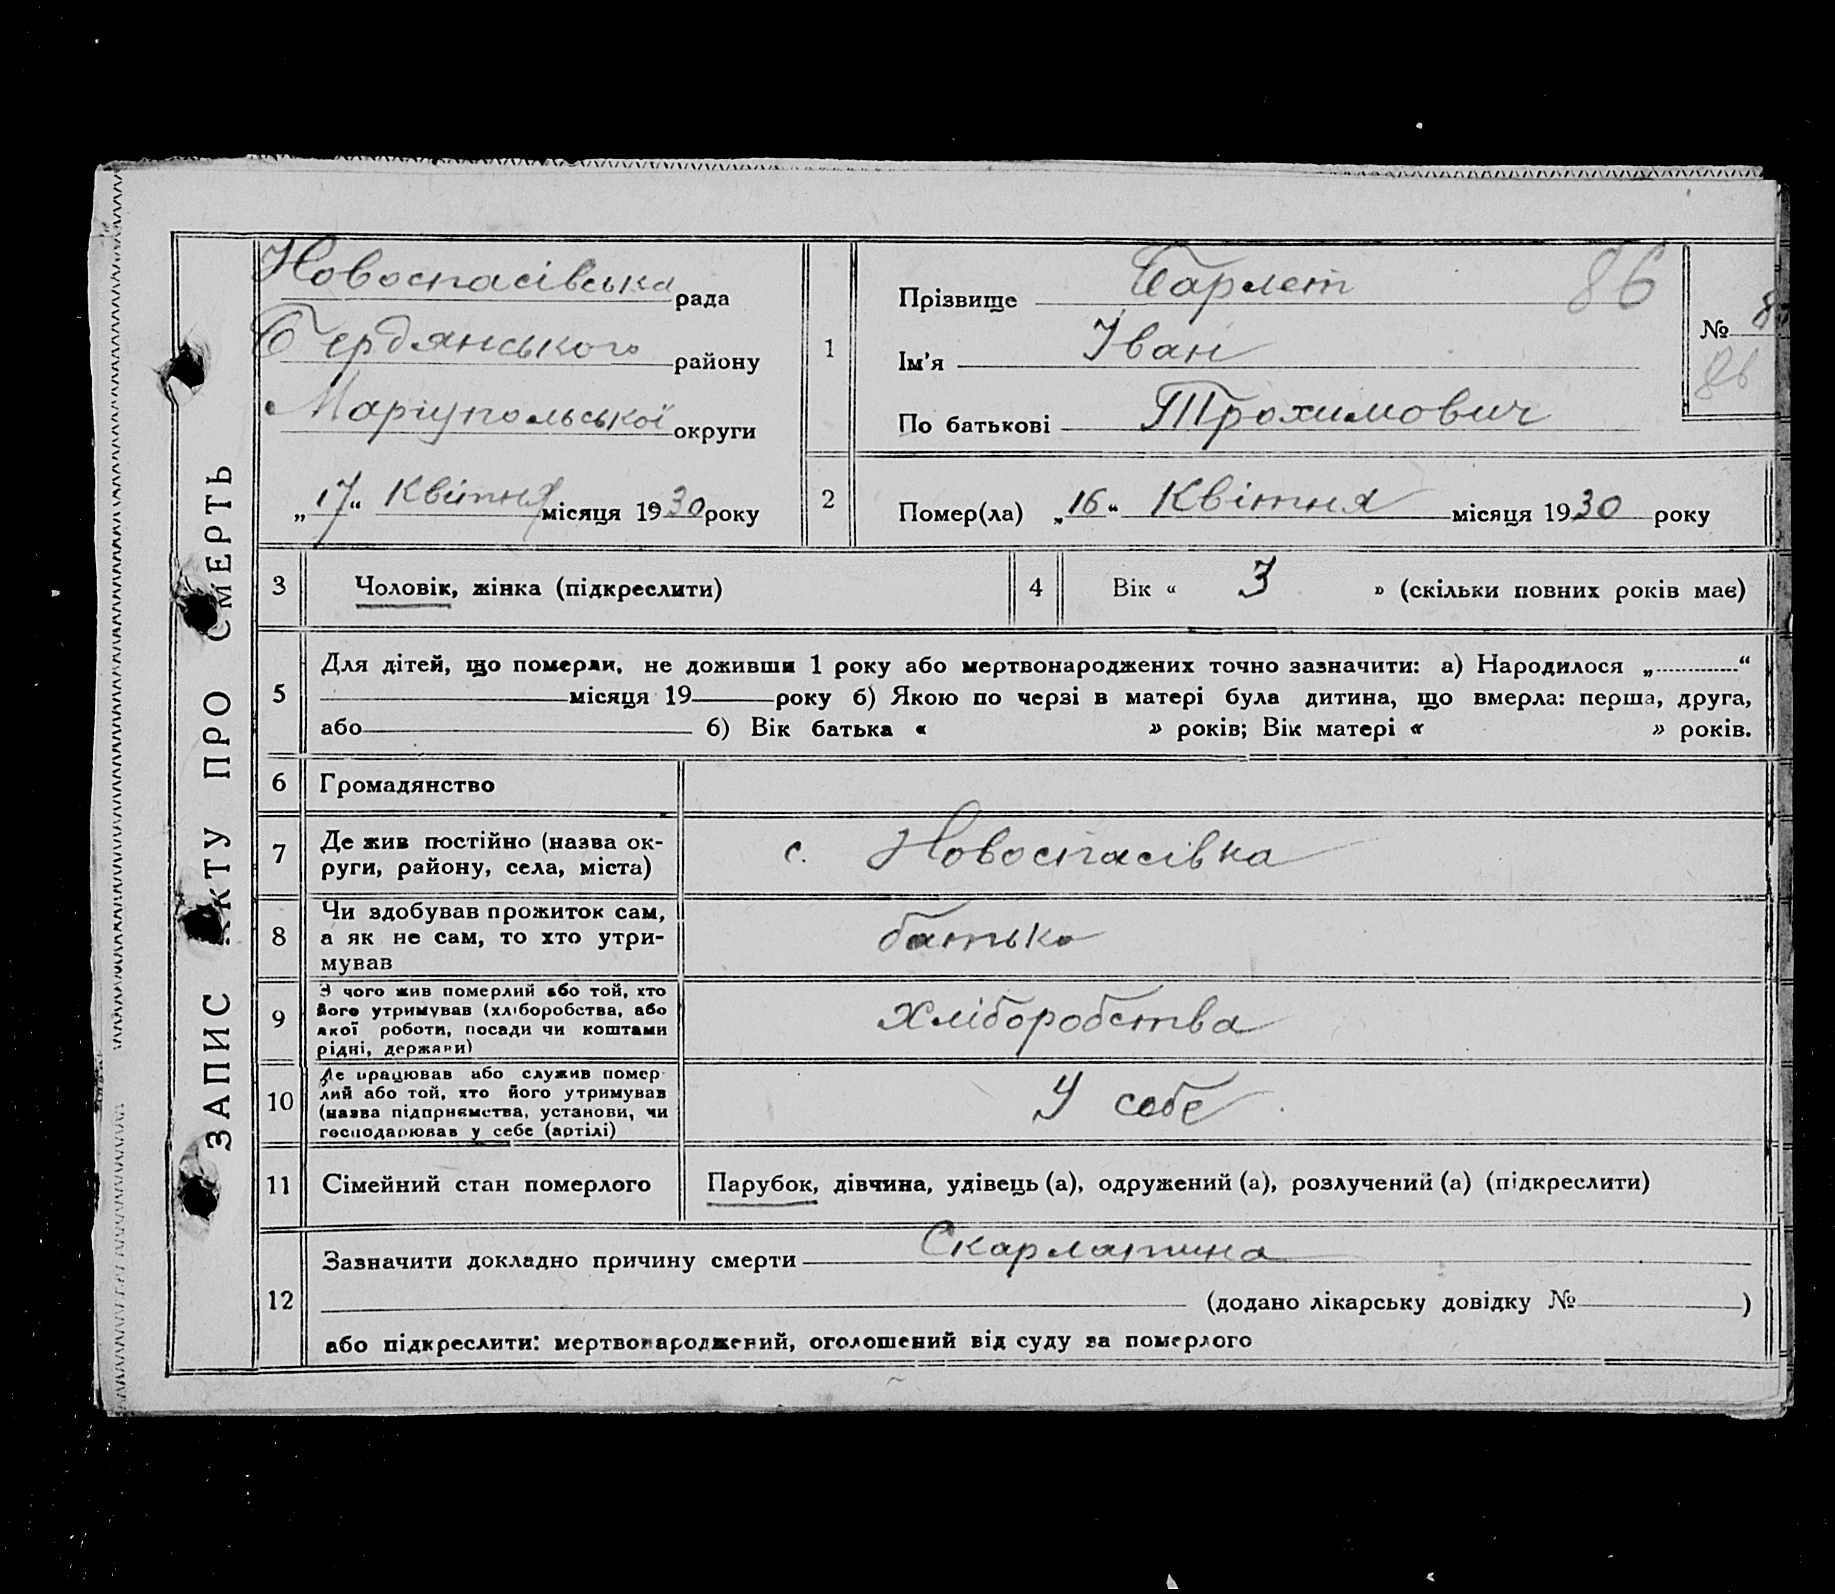 ЗАПИС АКТУ ПРО СМЕРТЬ
Новоспасівська рада
Бердянського району
Маріупольської округи
„17“ Квітня місяця 1930 року
1
Прізвище Барлет 86
Ім'я Іван
По батькові Трохимович
№ 8
86
2
Помер(ла) „16“ Квітня місяця 1930 року
3 Чоловік, жінка (підкреслити)
4 Вік « 3 » (скільки повних років має)
5
Для дітей, що померли, не доживши 1 року або мертвонароджених точно зазначити: а) Народилося „ “
місяця 19 року б) Якою по черзі в матері була дитина, що вмерла: перша, друга,
або 6) Вік батька « » років; Вік матері « » років.
6 Громадянство
7 Де жив постійно (назва ок-
руги, району, села, міста)
с. Новоспасівка
8 Чи здобував прожиток сам,
а як не сам, то хто утри-
мував
батько
9 З чого жив померлий або той, хто
його утримував (хліборобства, або
якої роботи, посади чи коштами
рідні, держави)
Хліборобства
10 Де працював або служив помер-
лий або той, хто його утримував
(назва підприємства, установи, чи
господарював у себе (артілі)
У себе
11 Сімейний стан померлого
Парубок, дівчина, удівець (а), одружений (а), розлучений (а) (підкреслити)
12
Зазначити докладно причину смерти Скарлатина
(додано лікарську довідку № )
або підкреслити: мертвонароджений, оголошений від суду за померлого